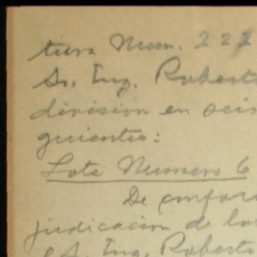 tura Num. 222
Sr. Ing. Robert
division en seis
guientes:
Lote Numero 6
De confor
judicacion de los
el Sr. Ing. Roberto